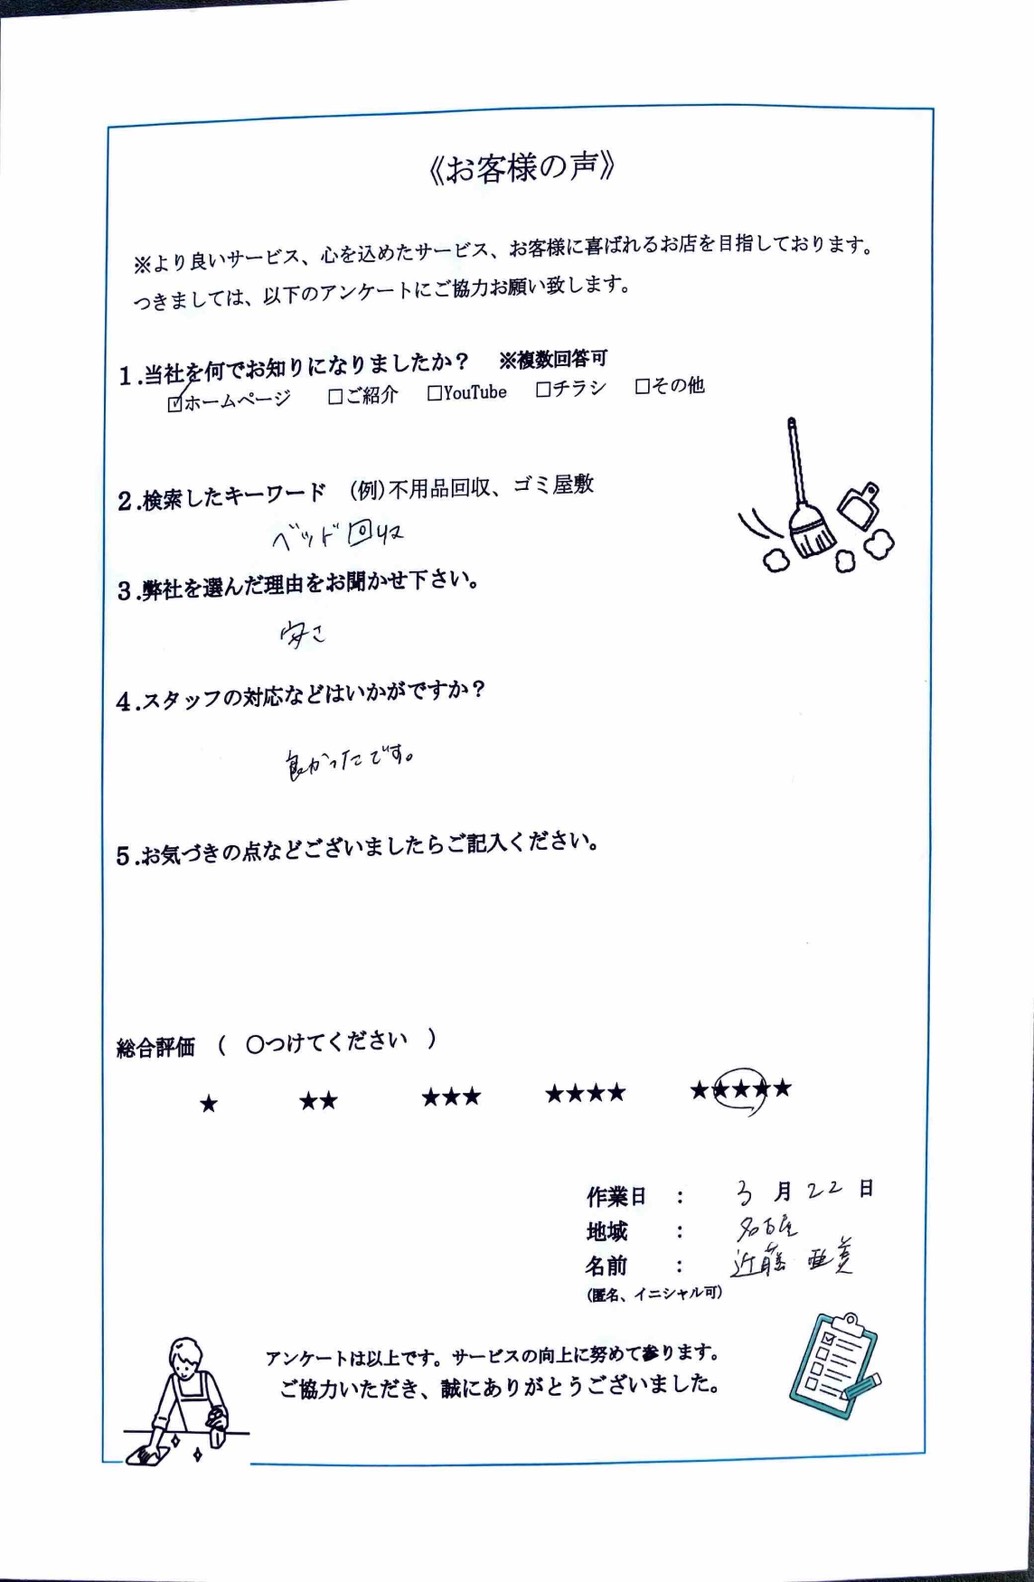 《お客様の声》
※より良いサービス、心を込めたサービス、お客様に喜ばれるお店を目指しております。
つきましては、以下のアンケートにご協力お願い致します。
1.当社を何でお知りになりましたか？ ※複数回答可
☑ホームページ □ご紹介 □YouTube □チラシ □その他
2.検索したキーワード (例)不用品回収、ゴミ屋敷
ベッド回収
3.弊社を選んだ理由をお聞かせ下さい。
安さ
4.スタッフの対応などはいかがですか？
良かったです。
5.お気づきの点などございましたらご記入ください。
総合評価 ( 〇つけてください )
★ ★★ ★★★ ★★★★ ★★★★★
作業日 : 3月22日
地域 : 名古屋
名前 : 近藤 亜美
(匿名、イニシャル可)
アンケートは以上です。サービスの向上に努めて参ります。
ご協力いただき、誠にありがとうございました。